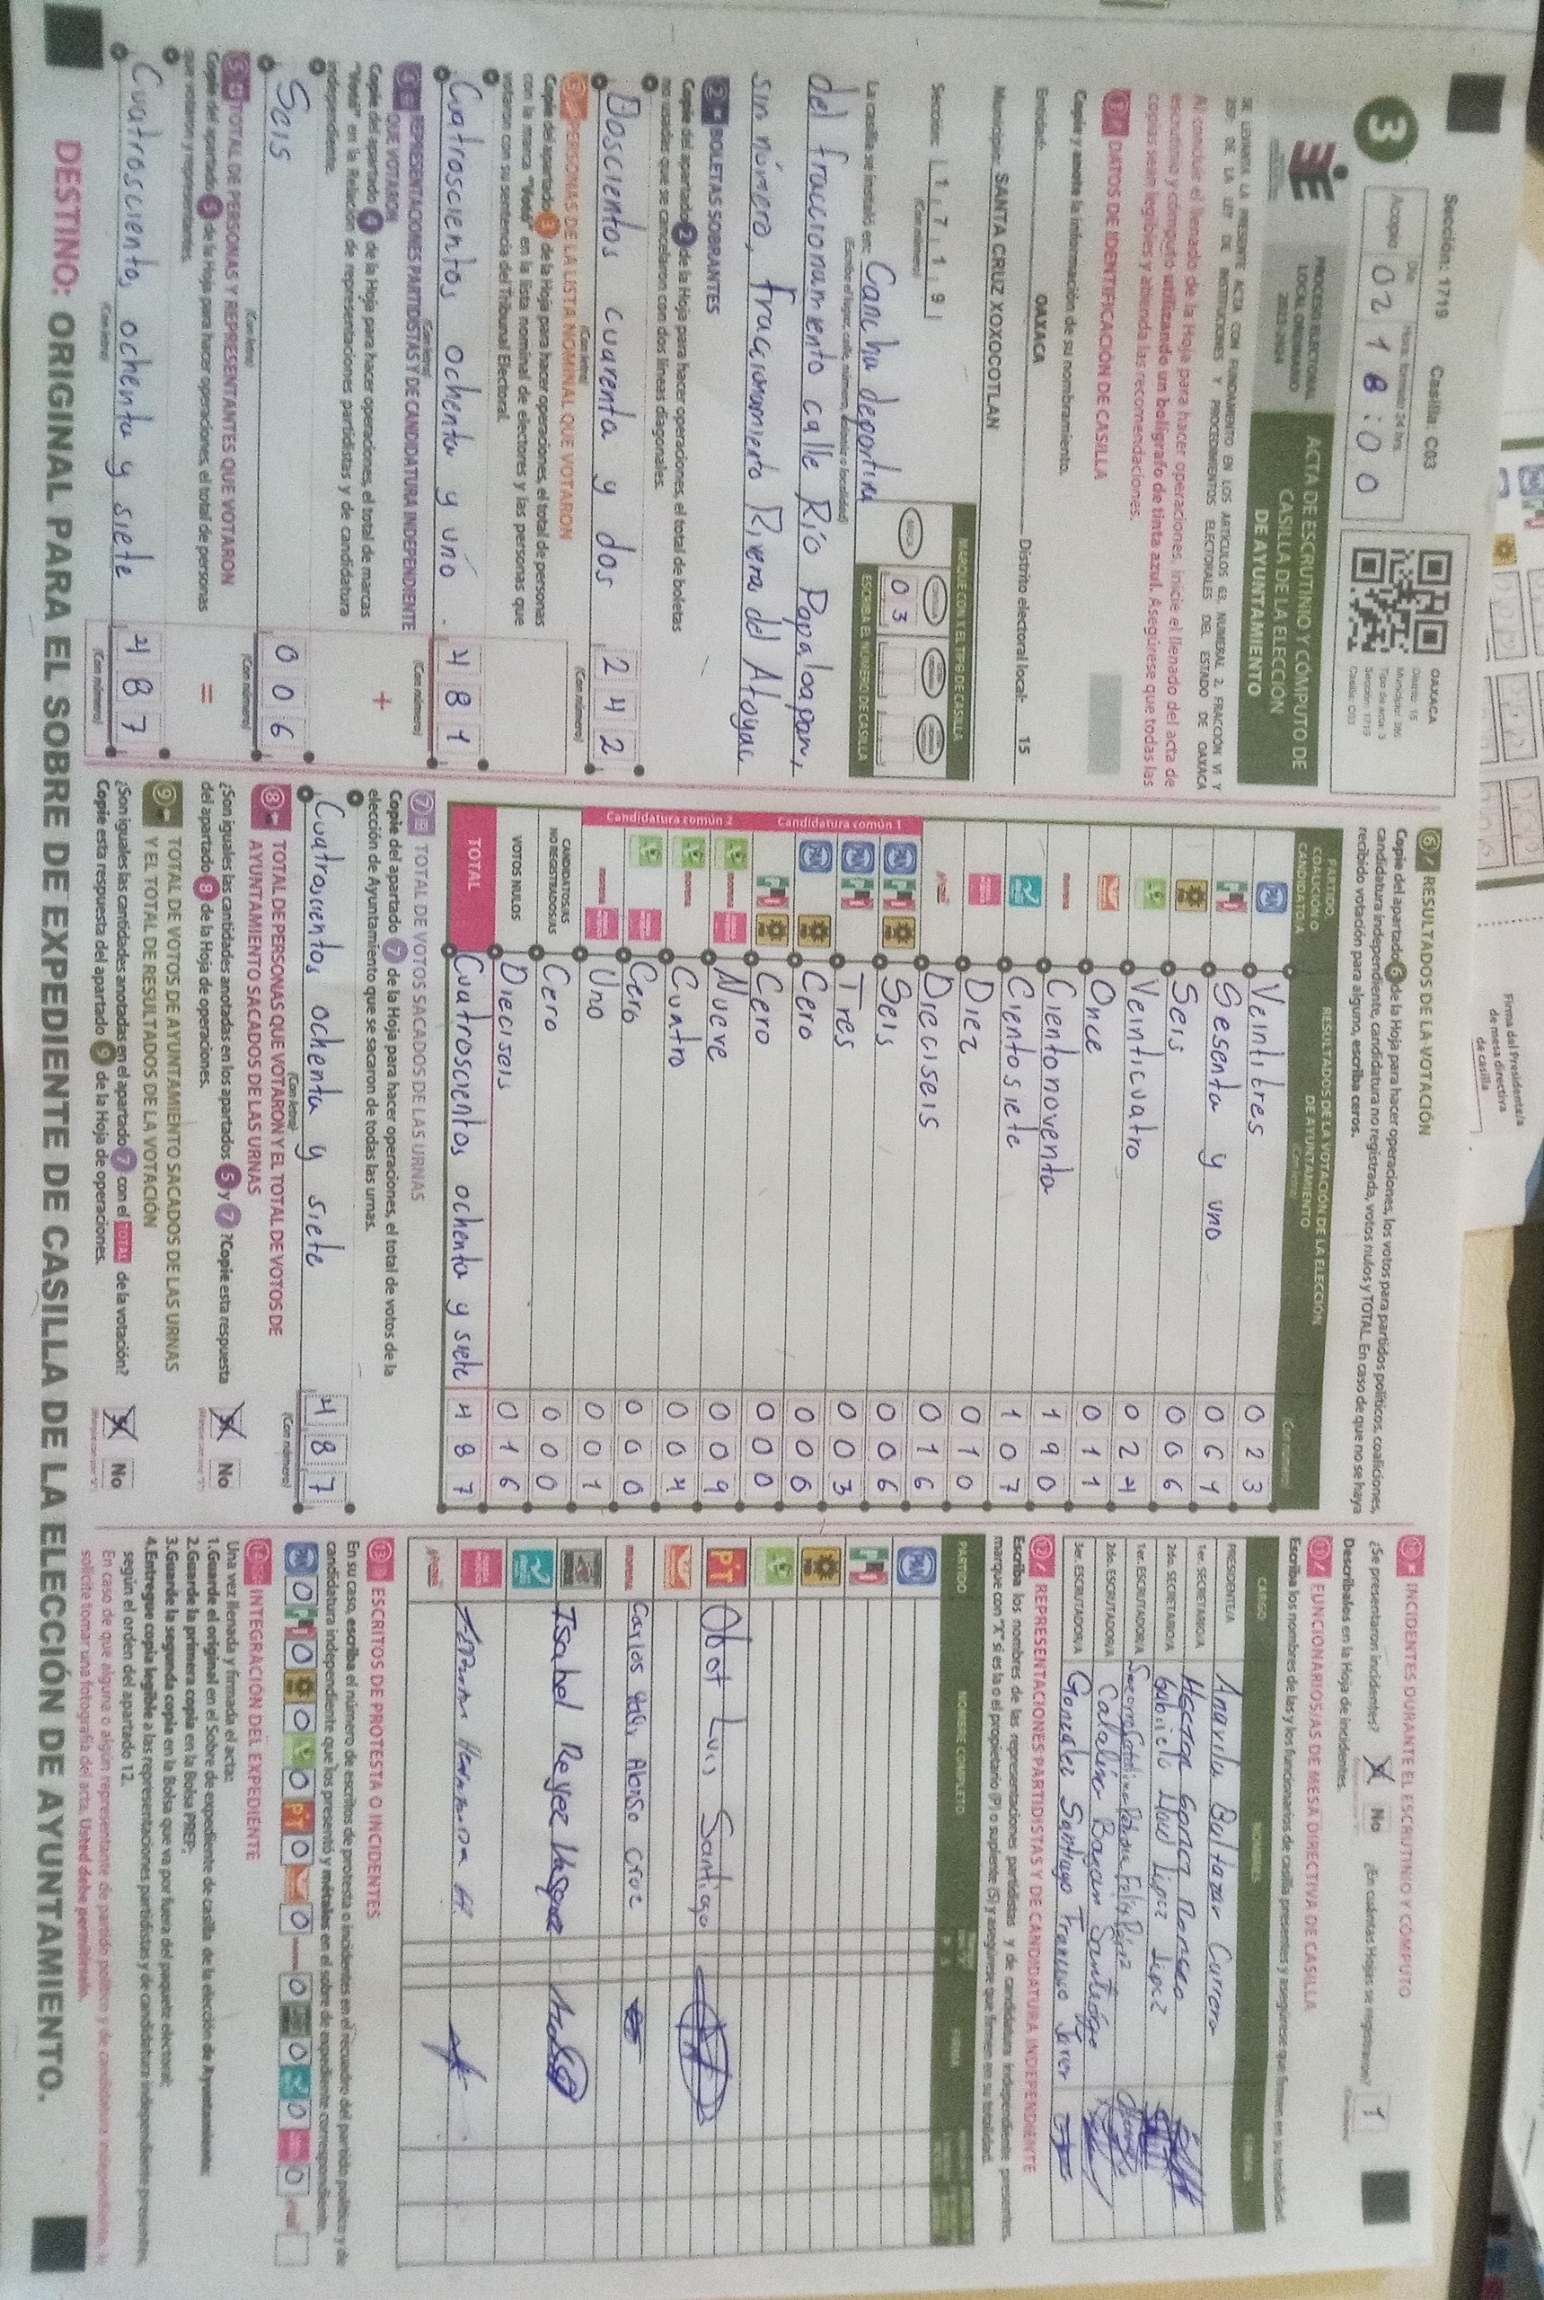 Sección: 1719 Casilla: C03
Día Hora: formato 24 hrs.
3 Acopio 02 18:00
OAXACA
Distrito: 15
Tipo de acta: 3
Sección: 1719
Casilla: C03
PROCESO ELECTORAL
LOCAL ORDINARIO
2023-2024
ACTA DE ESCRUTINIO Y CÓMPUTO DE
CASILLA DE LA ELECCIÓN
DE AYUNTAMIENTO
SE LEVANTA LA PRESENTE ACTA CON FUNDAMENTO EN LOS ARTÍCULOS 63, NUMERAL 2, FRACCIÓN VI Y
DE LA LEY DE INSTITUCIONES Y PROCEDIMIENTOS ELECTORALES DEL ESTADO DE OAXACA
Al concluir el llenado de la Hoja para hacer operaciones, inicie el llenado del acta de
escrutinio y cómputo utilizando un bolígrafo de tinta azul. Asegúrese que todas las
copias sean legibles y atienda las recomendaciones.
1 DATOS DE IDENTIFICACIÓN DE CASILLA
Copie y anote la información de su nombramiento.
Entidad: OAXACA Distrito electoral local: 15
Municipio: SANTA CRUZ XOXOCOTLAN
Sección: 1 7 1 9
(Con número)
MARQUE CON X EL TIPO DE CASILLA
BÁSICA
0 3
ESCRIBA EL NÚMERO DE CASILLA
La casilla se instaló en: Cancha deportiva
(Escriba el lugar, calle, número, colonia o localidad)
del fraccionamiento calle Río Papaloapan,
sin número, fraccionamiento Rivera del Atoyac
2 BOLETAS SOBRANTES
Copie del apartado 2 de la Hoja para hacer operaciones, el total de boletas
no usadas que se cancelaron con dos líneas diagonales.
Doscientos cuarenta y dos 2 4 2
(Con letra) (Con número)
3 PERSONAS DE LA LISTA NOMINAL QUE VOTARON
Copie del apartado 3 de la Hoja para hacer operaciones, el total de personas
con la marca "Votó" en la lista nominal de electores y las personas que
votaron con su sentencia del Tribunal Electoral.
Cuatroscientos ochenta y uno. 4 8 1
(Con letra) (Con número)
4 REPRESENTACIONES PARTIDISTAS Y DE CANDIDATURA INDEPENDIENTE
QUE VOTARON +
Copie del apartado 4 de la Hoja para hacer operaciones, el total de marcas
"Votó" en la Relación de representaciones partidistas y de candidatura
independiente.
Seis 0 0 6
(Con letra) (Con número)
5 TOTAL DE PERSONAS Y REPRESENTANTES QUE VOTARON
Copie del apartado 5 de la Hoja para hacer operaciones, el total de personas =
que votaron y representantes.
Cuatrosciento, ochenta y siete 4 8 7
(Con letra) (Con número)
6 RESULTADOS DE LA VOTACIÓN
Copie del apartado 6 de la Hoja para hacer operaciones, los votos para partidos políticos, coaliciones,
candidatura independiente, candidatura no registrada, votos nulos y TOTAL. En caso de que no se haya
recibido votación para alguno, escriba ceros.
PARTIDO,
COALICIÓN O
CANDIDATO/A
RESULTADOS DE LA VOTACIÓN DE LA ELECCIÓN
DE AYUNTAMIENTO
(Con letra) (Con número)
PAN Veintitres 0 2 3
PRI Sesenta y uno 0 6 1
PRD Seis 0 0 6
Veinticuatro 0 2 4
Once 0 1 1
morena Cientonoventa 1 9 0
Cientosiete 1 0 7
Diez 0 1 0
Dieciseis 0 1 6
Candidatura común 1
PAN PRI PRD Seis 0 0 6
PAN PRI Tres 0 0 3
PAN PRD Cero 0 0 0
PRI PRD Cero 0 0 0
Candidatura común 2
morena Nueve 0 0 9
morena Cuatro 0 0 4
Cero 0 0 0
morena Uno 0 0 1
CANDIDATOS/AS
NO REGISTRADOS/AS Cero 0 0 0
VOTOS NULOS Dieciseis 0 1 6
TOTAL Cuatroscientos ochenta y siete 4 8 7
7 TOTAL DE VOTOS SACADOS DE LAS URNAS
Copie del apartado 7 de la Hoja para hacer operaciones, el total de votos de la
elección de Ayuntamiento que se sacaron de todas las urnas.
Cuatroscientos ochenta y siete 4 8 7
(Con letra) (Con número)
8 TOTAL DE PERSONAS QUE VOTARON Y EL TOTAL DE VOTOS DE
AYUNTAMIENTO SACADOS DE LAS URNAS
¿Son iguales las cantidades anotadas en los apartados 5 y 7? Copie esta respuesta
del apartado 8 de la Hoja de operaciones. No
9 TOTAL DE VOTOS DE AYUNTAMIENTO SACADOS DE LAS URNAS
Y EL TOTAL DE RESULTADOS DE LA VOTACIÓN
¿Son iguales las cantidades anotadas en el apartado 7 con el TOTAL de la votación?
Copie esta respuesta del apartado 9 de la Hoja de operaciones. No
10 INCIDENTES DURANTE EL ESCRUTINIO Y CÓMPUTO
¿Se presentaron incidentes? No ¿En cuántas Hojas se registraron? 1
Descríbalos en la Hoja de incidentes.
11 FUNCIONARIOS/AS DE MESA DIRECTIVA DE CASILLA
Escriba los nombres de las y los funcionarios de casilla presentes y asegúrese que firmen en su totalidad.
CARGO NOMBRES FIRMAS
PRESIDENTE/A Anavilu Baltazar Carrera
1er. SECRETARIO/A
2do. SECRETARIO/A
1er. ESCRUTADOR/A
2do. ESCRUTADOR/A
3er. ESCRUTADOR/A
12 REPRESENTACIONES PARTIDISTAS Y DE CANDIDATURA INDEPENDIENTE
Escriba los nombres de las representaciones partidistas y de candidatura independiente presentes,
marque con "X" si es la o el propietario (P) o suplente (S) y asegúrese que firmen en su totalidad.
PARTIDO NOMBRE COMPLETO FIRMA
PAN
PRI
PRD
PT Obet Luis Santiago
morena
Isabel Reyez Vasquez
13 ESCRITOS DE PROTESTA O INCIDENTES
En su caso, escriba el número de escritos de protesta o incidentes en el recuadro del partido político y de
candidatura independiente que los presentó y métalos en el sobre de expediente correspondiente.
PAN 0 PRI 0 0 0 PT 0 0 0 0 0 0
14 INTEGRACIÓN DEL EXPEDIENTE
Una vez llenada y firmada el acta:
1.Guarde el original en el Sobre de expediente de casilla de la elección de Ayuntamiento;
2.Guarde la primera copia en la Bolsa PREP;
3.Guarde la segunda copia en la Bolsa que va por fuera del paquete electoral;
4.Entregue copia legible a las representaciones partidistas y de candidatura independiente presentes,
según el orden del apartado 12.
En caso de que alguna o algún representante de partido político y de candidatura independiente, le
solicite tomar una fotografía del acta, Usted debe permitírselo.
DESTINO: ORIGINAL PARA EL SOBRE DE EXPEDIENTE DE CASILLA DE LA ELECCIÓN DE AYUNTAMIENTO.
Firma del Presidente/a
de mesa directiva
de casilla